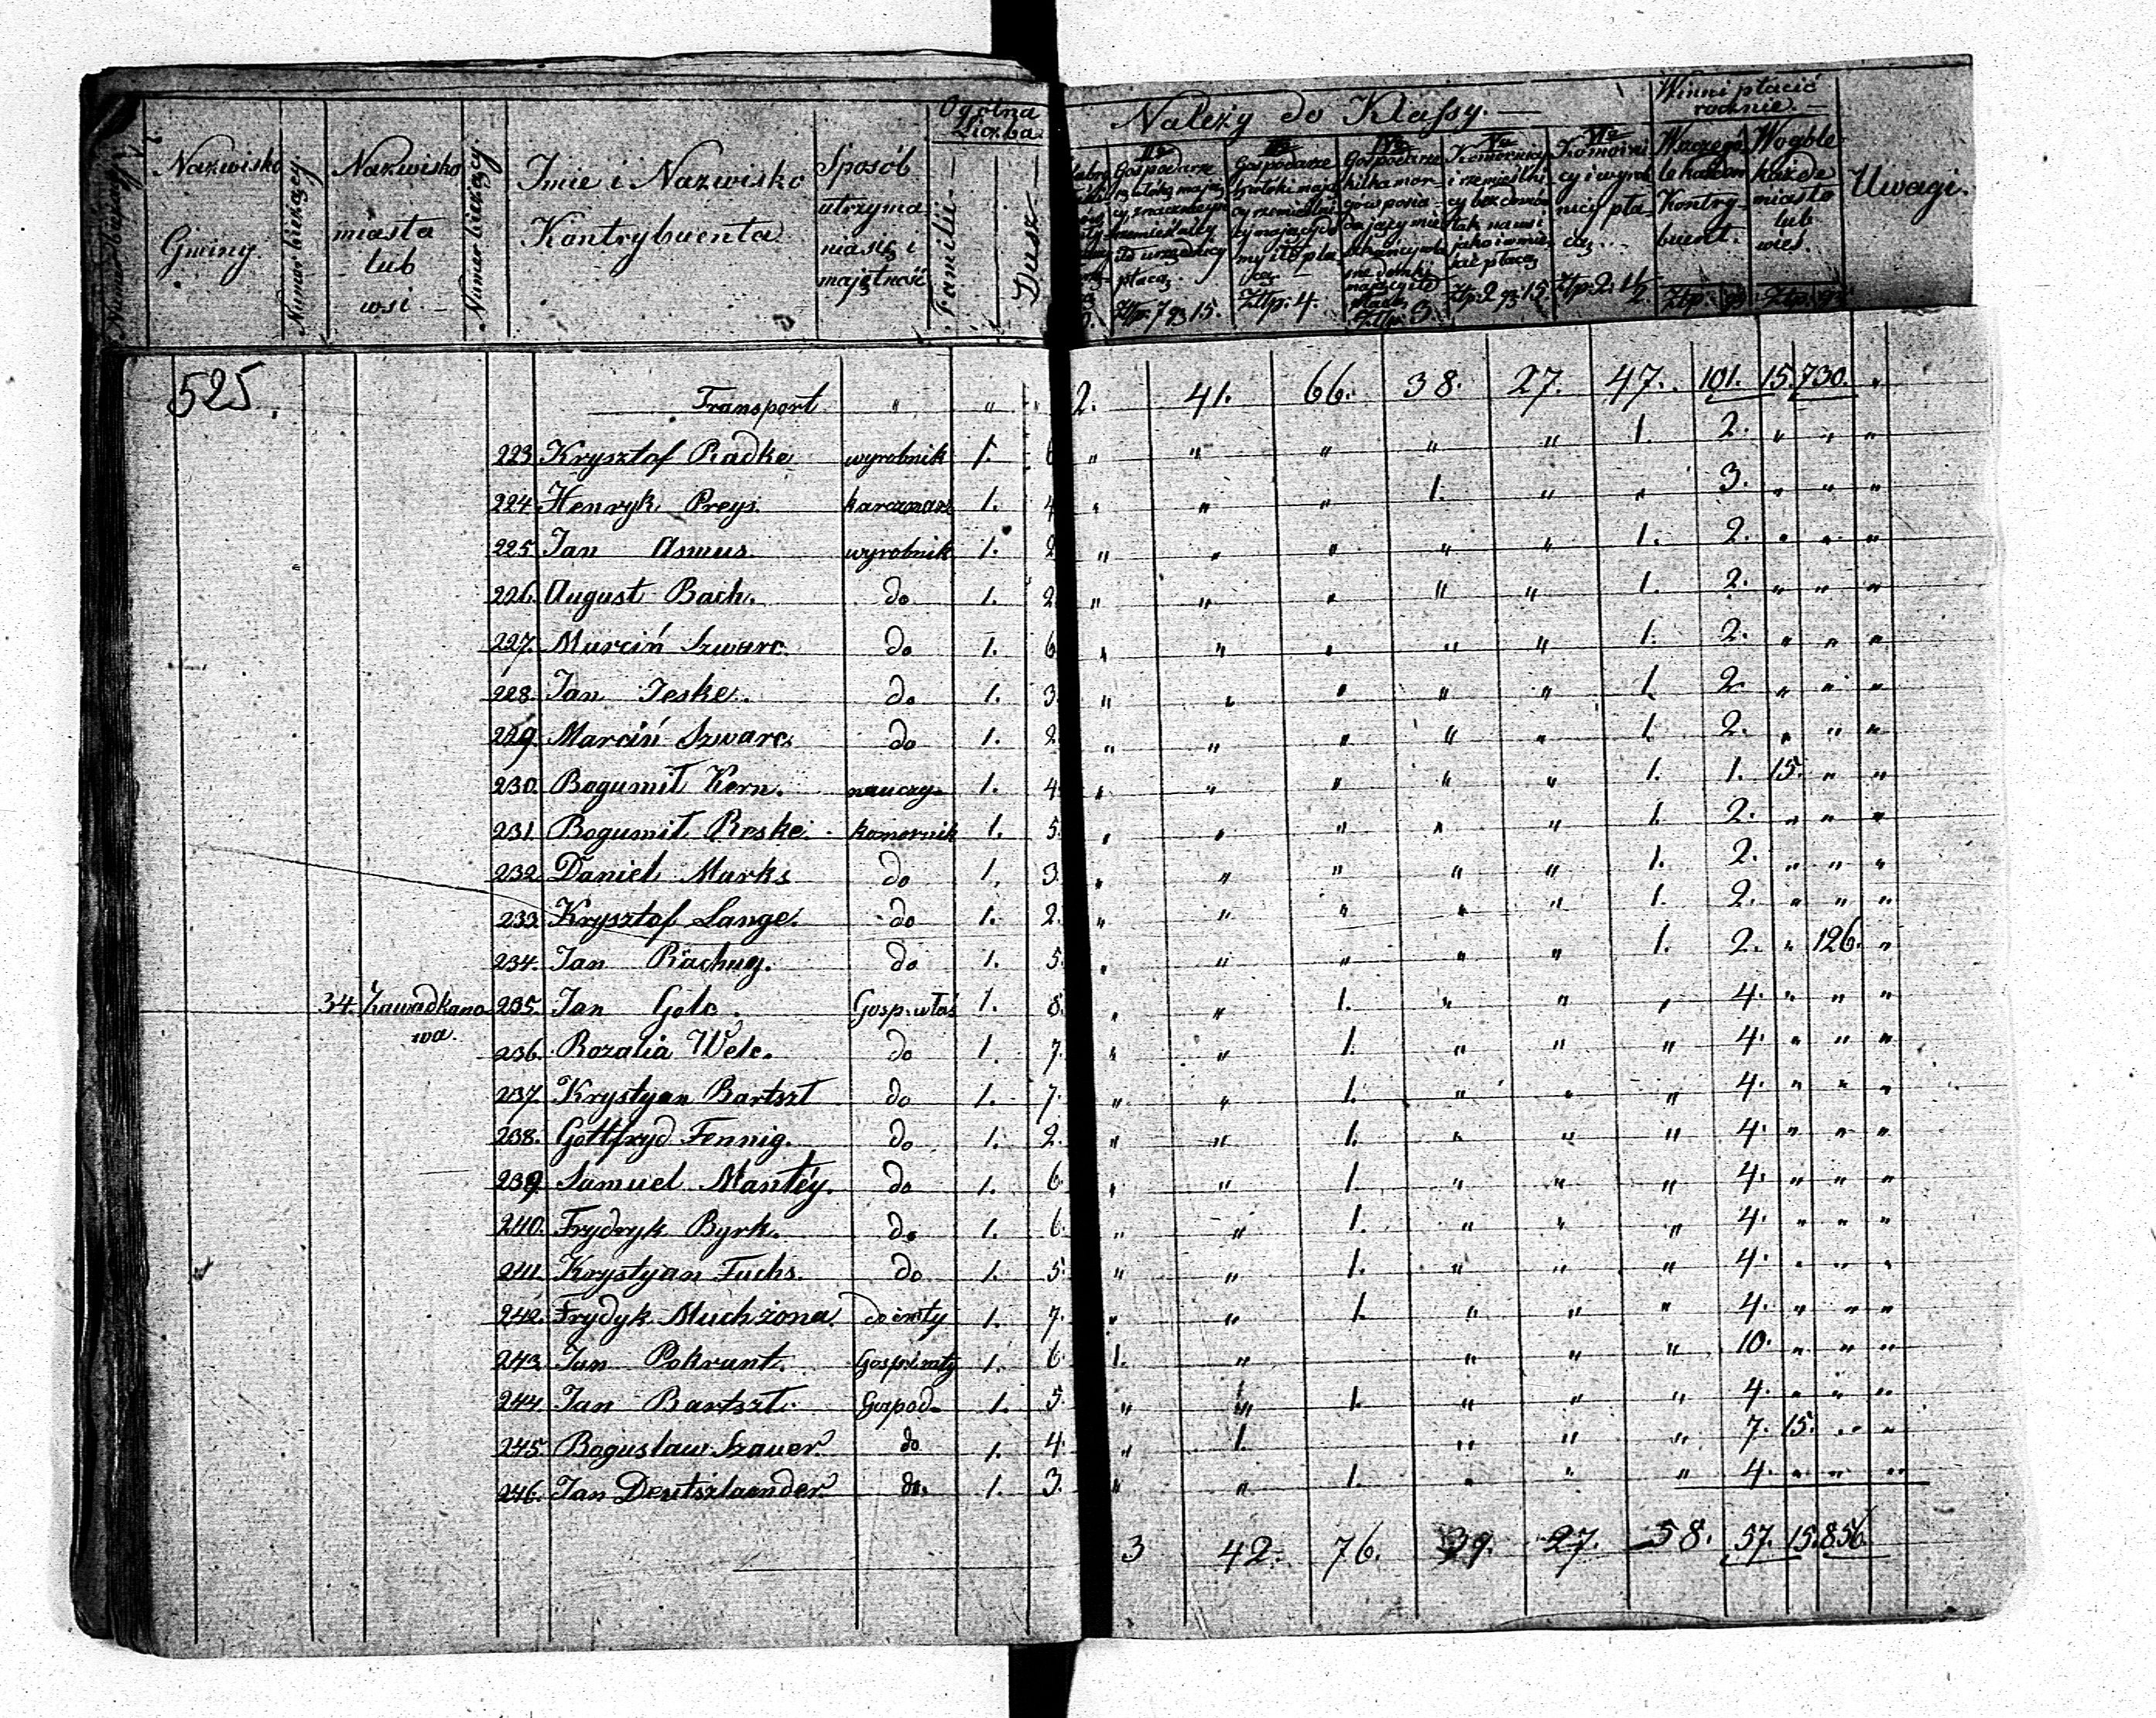 Nazwisko Gminy.
Numer bieżący.
Nazwisko miasta lub wsi
Numer bieżący
Imie i Nazwisko Kontrybuenta
Sposób utrzymania się i majętność
Ogólna Liczba
Familii
Dusz
Należy do Klassy.
IIa Gospodarze
Ztp. 7 gr 15.
Gospodarze
Ztp. 4.
IVa Gospodarze kilka mor-
Ztp. 3
Va Komornicy i rzemieślni
Ztp. 2 gr. 15.
VIa Komorni cy i wyrob nicy pła cą
Ztp. 2.
Winni płacić rocznie.
Kontry- buent.
Ztp. gr.
Wogóle każde miasto lub wieś.
Ztp. gr.
Uwagi.
525. Transport " " " 2. 41. 66. 38. 27. 47. 101. 15. 730. "
223. Krysztof Radke wyrobnik 1. 6 " " " " " 1. 2. " " "
224. Henryk Preys. karczmarz 1. 4 " " " 1. " " 3. " " "
225. Jan Asmus. wyrobnik 1. 2 " " " " " 1. 2. " " "
226. August Bach. do 1. 2 " " " " " 1. 2. " " "
227. Marciń Szwarc. do 1. 6 " " " " " 1. 2. " " "
228. Jan Jeske. do 1. 3 " " " " " 1. 2. " " "
229. Marciń Szwarc. do 1. 2 " " " " " 1. 2. " " "
230. Bogumił Kern. nauczy- 1. 4 " " " " " 1. 1. 15. " "
231. Bogumił Reske. komornik 1. 5. " " " " " 1. 2. " " "
232. Daniel Marks do 1. 3 " " " " " 1. 2. " " "
233. Krysztof Lange. do 1. 2. " " " " " 1. 2. " " "
234. Jan Rachuy. do 1. 5. " " " " " 1. 2. " 126. "
34. Zawadkano 235. Jan Golc. Gosp. włoś 1. 8. " " 1. " " " 4. " " "
wa. 236. Rozalia Welc. do 1. 7. " " 1. " " " 4. " " "
237. Krystyan Bartszt do 1. 7. " " 1. " " " 4. " " "
238. Gottfryd Fennig. do 1. 2. " " 1. " " " 4. " " "
239. Samuel Mantéy. do 1. 6 " " 1. " " " 4. " " "
240. Frydryk Byrk. do 1. 6. " " 1. " " " 4. " " "
241. Krystyan Fuchs. do 1. 5 " " 1. " " " 4. " " "
242. Frydyk Much żona. do emty 1. 7. " " 1. " " " 4. " " "
243. Jan Pokrant. 1. 6 1. " " " " 10. " " "
244. Jan Bartszt. Gospod- 1. 5. " " 1. " " " 4. " " "
245. Bogusław Szauer do 1. 4. " 1. " " " 7. 15. " "
246. Jan Deutszlaender do. 1. 3. " " 1. " " " 4. " " "
3 42. 76. 39. 27. 58. 57. 15. 856.